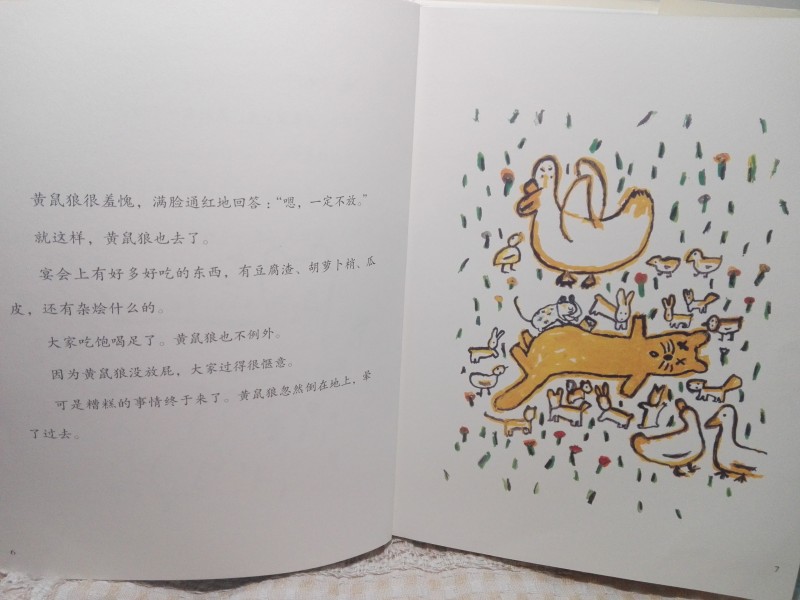 黄鼠狼很羞愧，满脸通红地回答：“嗯，一定不放。”
就这样，黄鼠狼也去了。
宴会上有好多好吃的东西，有豆腐渣、胡萝卜梢、瓜
皮，还有杂烩什么的。
大家吃饱喝足了。黄鼠狼也不例外。
因为黄鼠狼没放屁，大家过得很惬意。
可是糟糕的事情终于来了。黄鼠狼忽然倒在地上，晕
了过去。
6
7